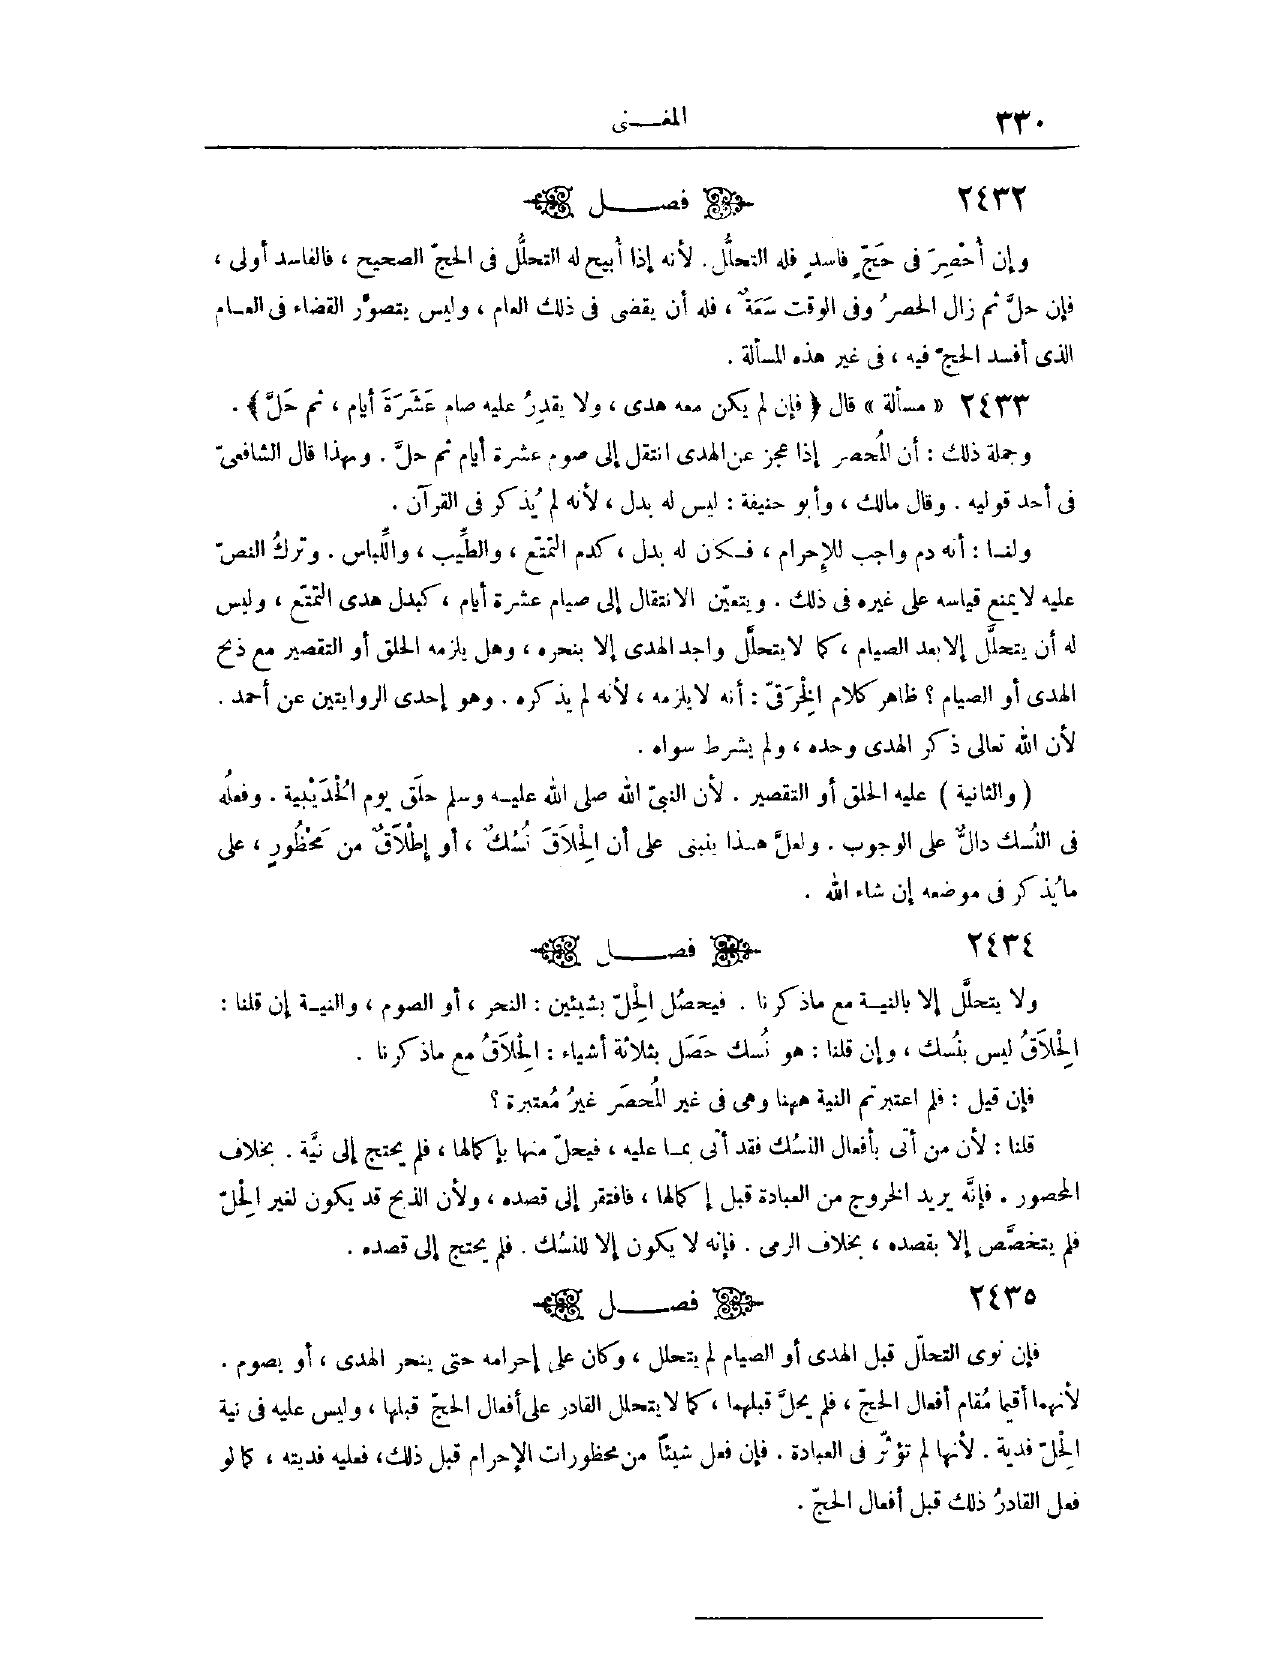 ٣٣٠
المغنى
٢٤٣٢
فصل
وإن أُحْصِرَ فى حَجّ فاسدٍ فله التحلُّل . لأنه إذا أُبيح له التحلُّل فى الحجّ الصحيح ، فالفاسد أولى ،
فإن حلَّ ثم زال الحصرُ وفى الوقت سَعَةٌ ، فله أن يقضى فى ذلك العام ، وليس يتصوَّر القضاء فى العام
الذى أفسد الحجّ فيه ، فى غير هذه المسألة .
٢٤٣٣ « مسألة » قال ﴿ فإن لم يكن معه هدى ، ولا يقدِرُ عليه صام عَشَرَةَ أيام ، ثم حَلَّ ﴾ .
وجملة ذلك : أن المُحصر إذا عجز عن الهدى انتقل إلى صوم عشرة أيام ثم حلَّ . وبهذا قال الشافعىّ
فى أحد قوليه . وقال مالك ، وأبو حنيفة : ليس له بدل ، لأنه لم يُذكر فى القرآن .
ولنا : أنه دم واجب للإِحرام ، فكان له بدل ، كدم التمتّع ، والطِّيب ، واللِّباس . وتركُ النصّ
عليه لا يمنع قياسه على غيره فى ذلك . ويتعيّن الانتقال إلى صيام عشرة أيام ، كبدل هدى التمتّع ، وليس
له أن يتحلَّل إلا بعد الصيام ، كما لا يتحلَّل واجد الهدى إلا بنحره ، وهل يلزمه الحلق أو التقصير مع ذبح
الهدى أو الصيام ؟ ظاهر كلام الخِرَقىّ : أنه لا يلزمه ، لأنه لم يذكره . وهو إحدى الروايتين عن أحمد .
لأن الله تعالى ذكر الهدى وحده ، ولم يشرط سواه .
( والثانية ) عليه الحلق أو التقصير . لأن النبىّ الله صلى الله عليه وسلم حلَق يوم الحُدَيْبية . وفعلُه
فى النُسك دالٌّ على الوجوب . ولعلَّ هذا ينبنى على أن الحِلَاقَ نُسُكٌ ، أو إطْلَاقٌ من مَحْظُورٍ ، على
ما يُذكر فى موضعه إن شاء الله .
٢٤٣٤
فصل
ولا يتحلَّل إلا بالنية مع ماذكرنا . فيحصُل الحِلّ بشيئين : النحر ، أو الصوم ، والنية إن قلنا :
الحِلَاقُ ليس بنُسك ، وإن قلنا : هو نُسك حَصَل بثلاثة أشياء : الحِلَاقُ مع ماذكرنا .
فإن قيل : فلم اعتبرتم النية ههنا وهى فى غير المُحصَر غيرُ مُعتبرة ؟
قلنا : لأن من أتى بأفعال النسُك فقد أتى بما عليه ، فيحلّ منها بإكمالها ، فلم يحتج إلى نيَّة . بخلاف
المحصور . فإنَّه يريد الخروج من العبادة قبل إكمالها ، فافتقر إلى قصده ، ولأن الذبح قد يكون لغير الحِلّ
فلم يتخصَّص إلا بقصده ، بخلاف الرمى . فإنه لا يكون إلا للنسُك . فلم يحتج إلى قصده .
٢٤٣٥
فصل
فإن نوى التحلّل قبل الهدى أو الصيام لم يتحلل ، وكان على إحرامه حتى ينحر الهدى ، أو يصوم .
لأنهما أقيما مُقام أفعال الحجّ ، فلم يحلَّ قبلهما ، كما لا يتحلل القادر على أفعال الحجّ قبلها ، وليس عليه فى نية
الحِلّ فدية . لأنها لم تؤثّر فى العبادة . فإن فعل شيئاً من محظورات الإحرام قبل ذلك، فعليه فديته ، كما لو
فعل القادرُ ذلك قبل أفعال الحجّ .